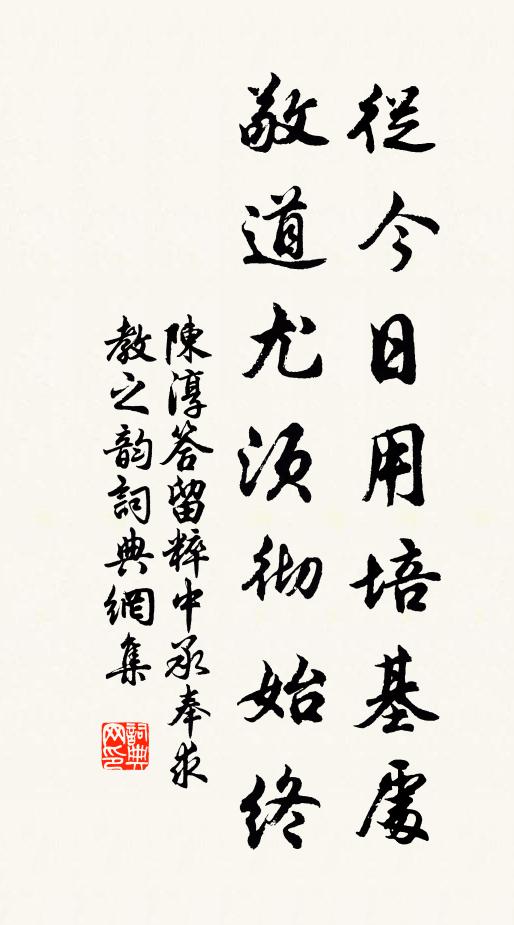 從今日用培基處
敬道尤須彻始終
陳淳答留粹中承奉求
教之韵詞典網集
詞典网印